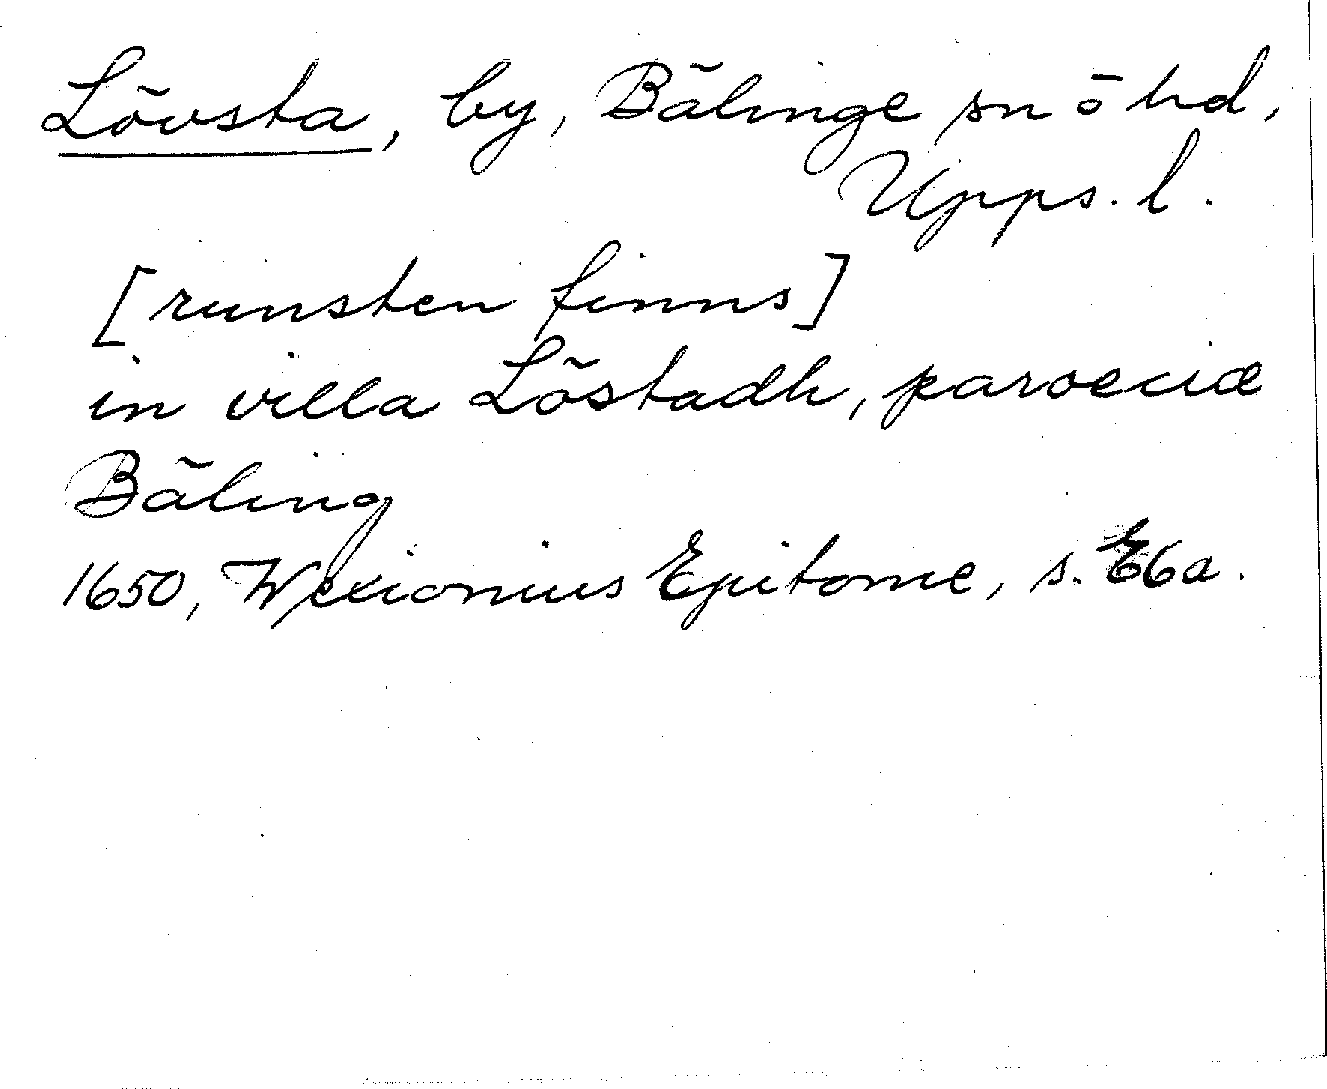 Lövsta, by, Bälinge sn ö hd,
Upps. l.
[runsten finns]
in villa Löstadh, paroeciæ
Bäling
1650, Wexionius Epitome, s. E6a.